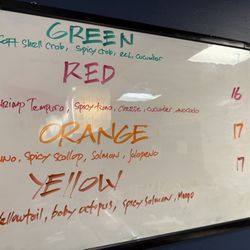 GREEN
Soft shell crab, spicy crab, eel, cucumber
RED 16
Shrimp Tempura, spicy tuna, cheese, cucumber, avocado
ORANGE 17
spicy scallop, salmon, jalapeno 17
YELLOW
Yellowtail, baby octopus, spicy salmon, mango